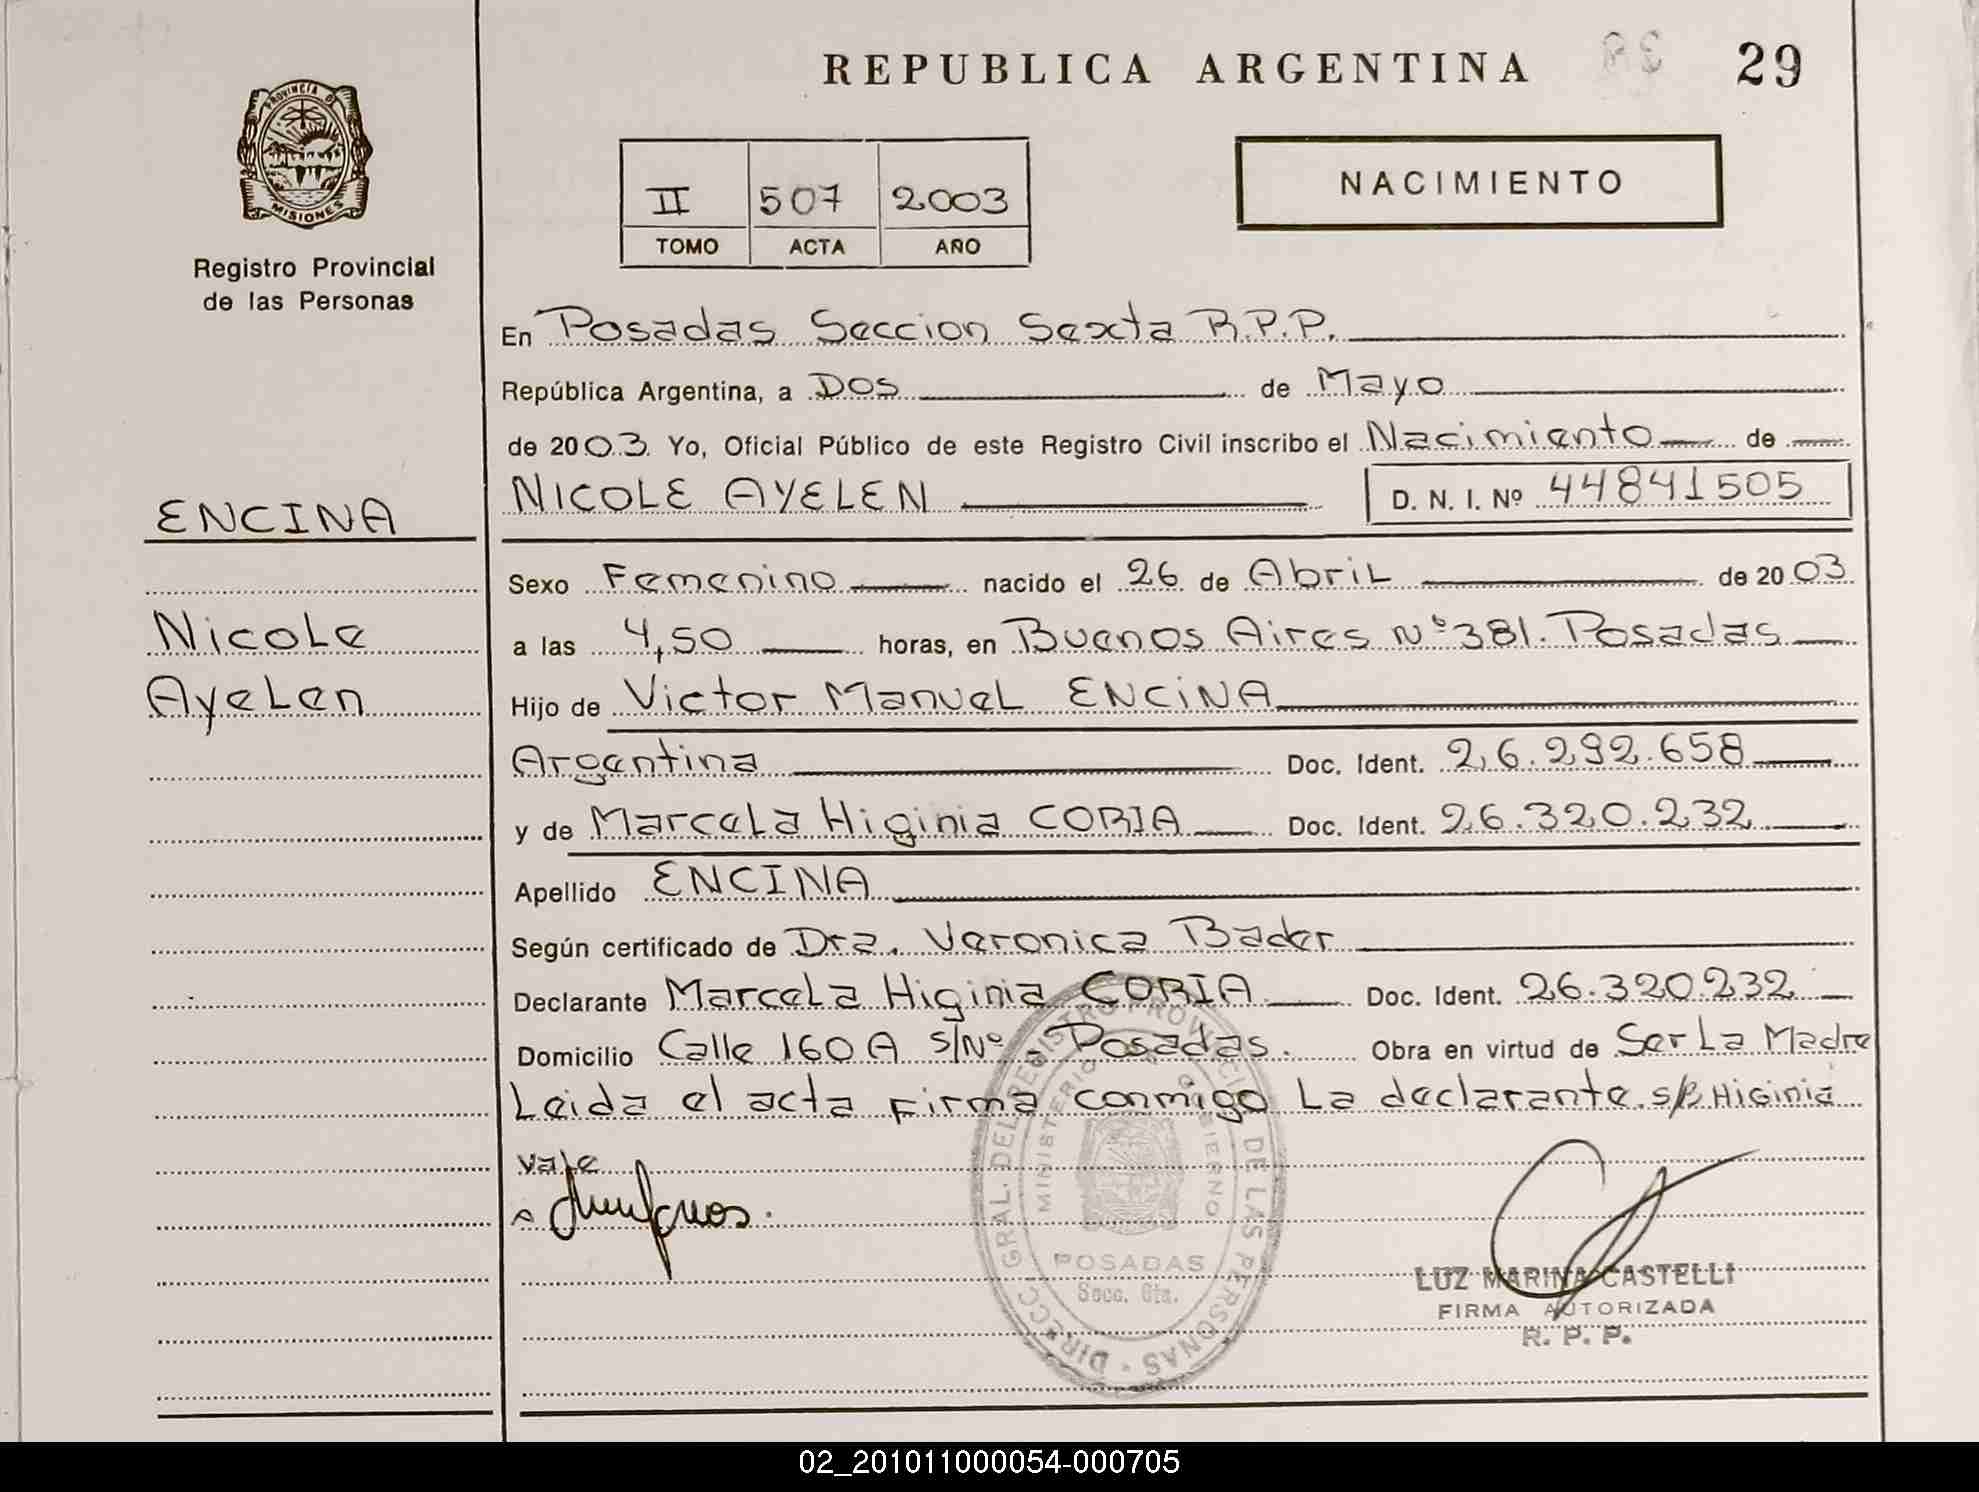 REPUBLICA ARGENTINA 29
PROVINCIA DE
MISIONES
Registro Provincial
de las Personas
II 507 2003
TOMO ACTA AÑO
NACIMIENTO
En Posadas Seccion Sexta R.P.P.
República Argentina, a Dos de Mayo
de 2003. Yo, Oficial Público de este Registro Civil inscribo el Nacimiento de
NICOLE AYELEN D. N. I. Nº 44841505
ENCINA
Nicole
Ayelen
Sexo Femenino nacido el 26 de Abril de 2003
a las 4,50 horas, en Buenos Aires Nº 381. Posadas
Hijo de Victor Manuel ENCINA
Argentina Doc. Ident. 26.292.658
y de Marcela Higinia CORIA Doc. Ident. 26.320.232
Apellido ENCINA
Según certificado de Dra. Veronica Bader
Declarante Marcela Higinia CORIA Doc. Ident. 26.320.232
Domicilio Calle 160 A s/Nº - Posadas. Obra en virtud de Ser La Madre
Leida el acta firma conmigo La declarante. s/R Higinia
Vale
DIRECC. GRAL. DEL REGISTRO PROVINCIAL DE LAS PERSONAS
MINISTERIO DE GOBIERNO
POSADAS
Secc. 6ta.
LUZ MARINA CASTELLI
FIRMA AUTORIZADA
R. P. P.
02_201011000054-000705